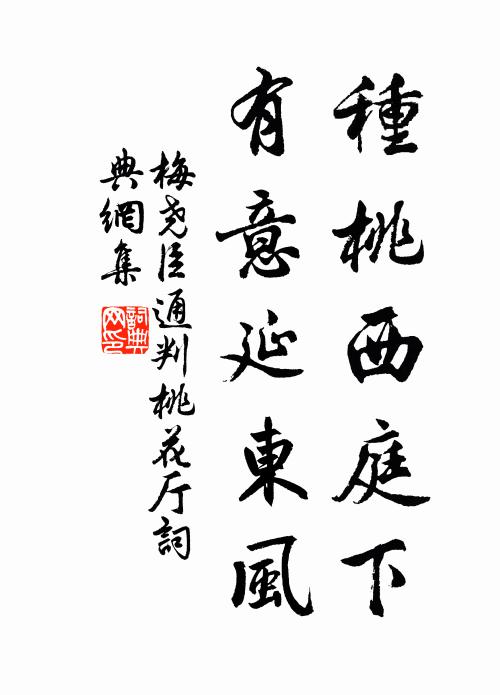 種桃西庭下
有意延東風
梅尧臣通判桃花厅詞
典網集
詞典
网印